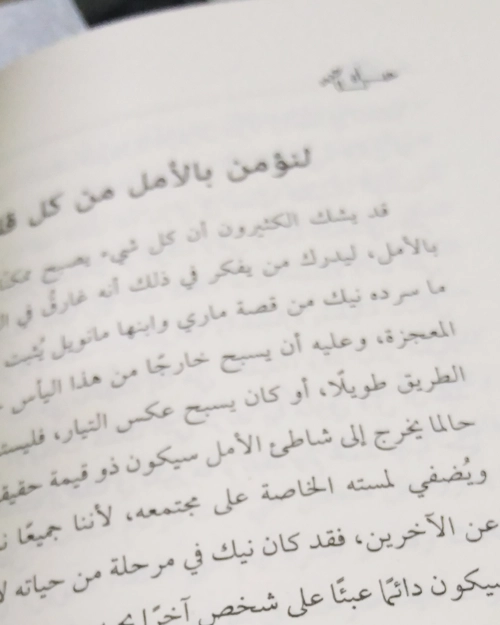 لنؤمن بالأمل من كل
قد يشك الكثيرون أن كل شيء يصبح
بالأمل، ليدرك من يفكر في ذلك أنه غارقٌ في
ما سرده نيك من قصة ماري وابنها مانويل يُثبت
المعجزة، وعليه أن يسبح خارجًا من هذا اليأس
الطريق طويلًا، أو كان يسبح عكس التيار،
حالما يخرج إلى شاطئ الأمل سيكون ذو قيمة
ويُضفي لمسته الخاصة على مجتمعه، لأننا جميعًا
عن الآخرين، فقد كان نيك في مرحلة من حياته
سيكون دائمًا عبئًا على شخص آخر